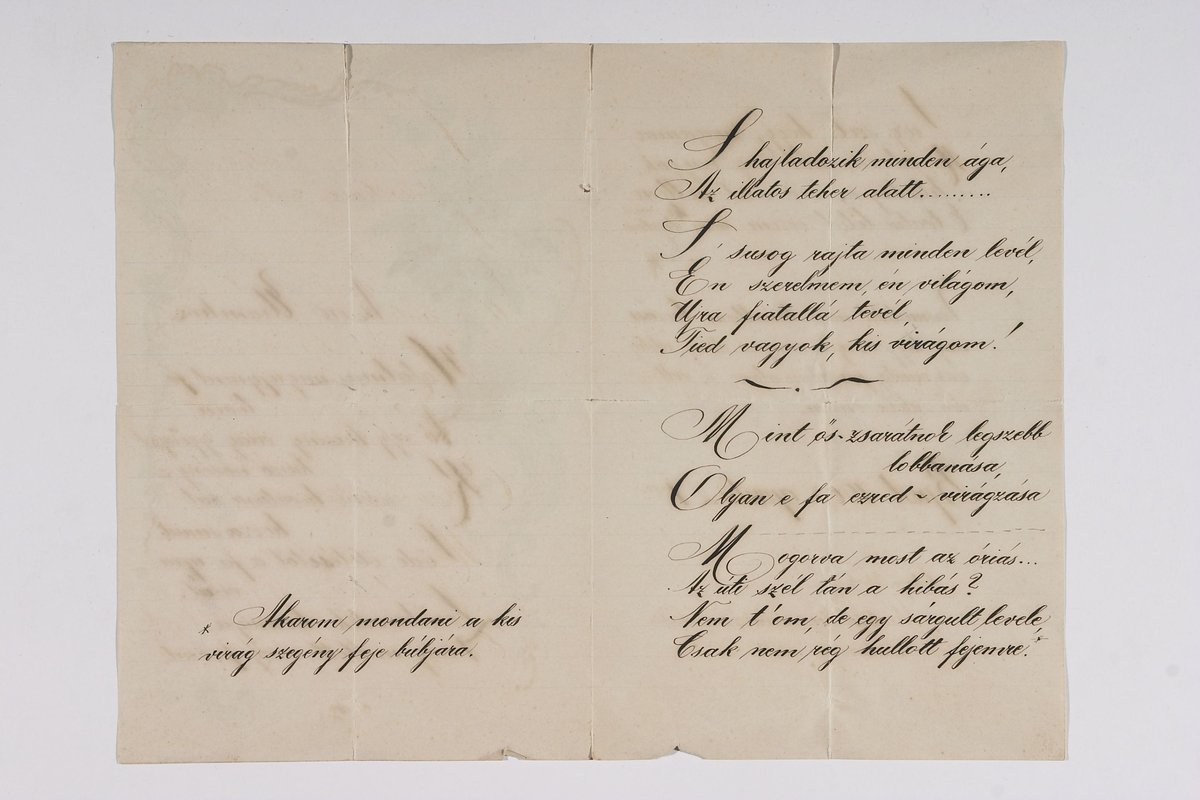 S hajladozik minden ága,
Az illatos teher alatt.........
S' susog rajta minden levél,
En szerelmem, én világom,
Ujra fiatallá tevél
Tied vagyok, kis virágom!
Mint ős-zsarátnok legszebb
lobbanása,
Olyan e fa ezred - virágzása
Mogorva most az óriás...
Az úti szél tán a hibás?
Nem t'om, de egy sárgult levele
Csak nem rég hullott fejemre.*
* Akarom mondani a kis
virág szegény feje búbjára.